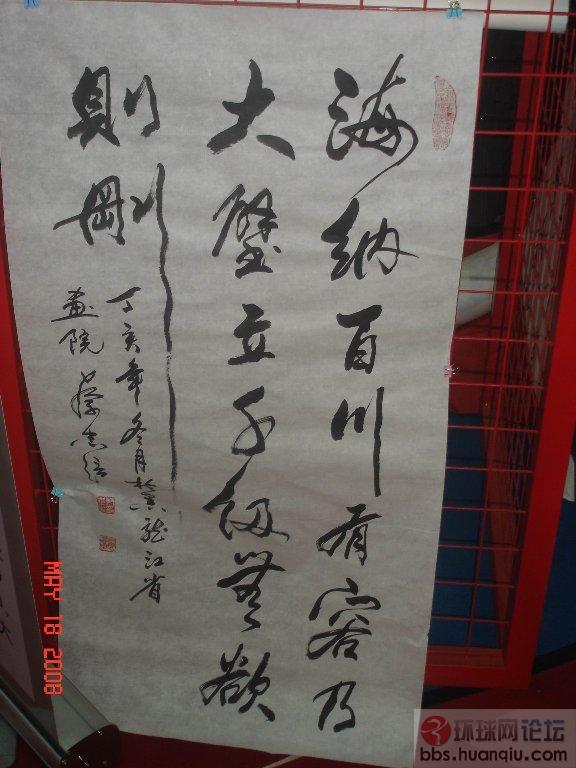 海纳百川有容乃
大壁立千仞無欲
則剛
丁亥年冬月黑龙江省
画院
MAY 18 2008
环球网论坛
bbs.huanqiu.com